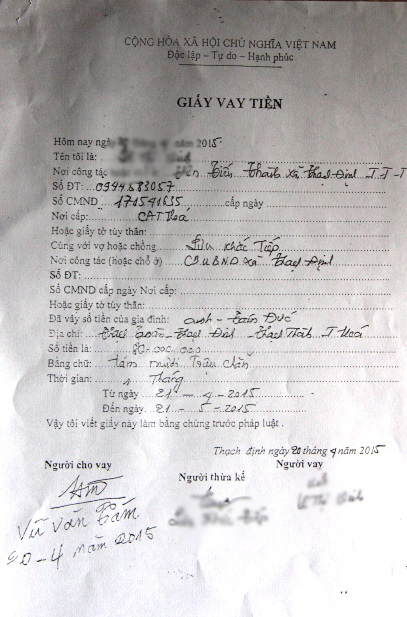 CỘNG HÒA XÃ HỘI CHỦ NGHĨA VIỆT NAM
Độc lập – Tự do – Hạnh phúc
GIẤY VAY TIỀN
Hôm nay ngày năm 2015
Tên tôi là:
Nơi công tác Tiến Thành xã Thạch Định T.T - T
Số ĐT: 0994683057
Số CMND 171591635 cấp ngày
Nơi cấp: CA T Hoá
Hoặc giấy tờ tùy thân:
Cùng với vợ hoặc chồng Lưu Khắc Tiếp
Nơi công tác (hoặc chỗ ở) UBND xã Thạch Định
Số ĐT:
Số CMND cấp ngày Nơi cấp:
Hoặc giấy tờ tùy thân:
Đã vây số tiền của gia đình: anh - Đức
Địa chỉ: Thạch Định - Thạch Thành - T Hoá
Số tiền là: 80.000.000
Bằng chữ: tám mươi Triệu chẵn
Thời gian: 1 Tháng
Từ ngày 21 - 4 - 2015
Đến ngày 21 - 5 - 2015
Vậy tôi viết giấy này làm bằng chứng trước pháp luật .
Thạch định ngày 20 tháng 4 năm 2015
Người cho vay Người thừa kế Người vay
Vũ Văn Tám
20 - 4 năm 2015